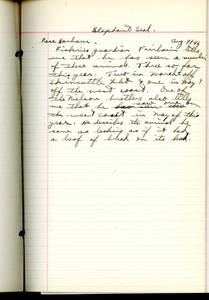 Elephant Seal.
Rose Harbour. Aug 9/46
Fisheries guardian Fairbairn tells
me that he has seen a number
of these animals. Three so far
this year. Two in March off
& one in May
off the west coast. One of
the Nelson brothers also tells
me that he saw one on
the west coast in May of this
year. He describes the animal he
saw as looking as if it had
a loaf of bread on its head.